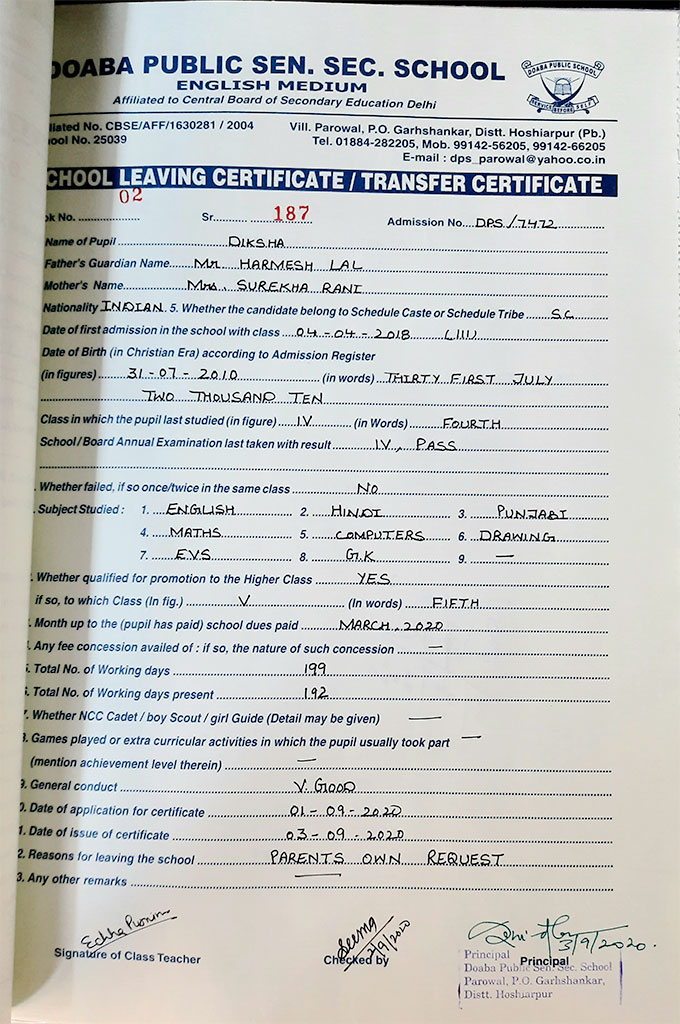 DOABA PUBLIC SEN. SEC. SCHOOL
ENGLISH MEDIUM
Affiliated to Central Board of Secondary Education Delhi
DOABA PUBLIC SCHOOL
SERVICE BEFORE SELF
liated No. CBSE/AFF/1630281 / 2004
ool No. 25039
Vill. Parowal, P.O. Garhshankar, Distt. Hoshiarpur (Pb.)
Tel. 01884-282205, Mob. 99142-56205, 99142-66205
E-mail : dps_parowal@yahoo.co.in
CHOOL LEAVING CERTIFICATE / TRANSFER CERTIFICATE
ok No. 02 Sr. 187 Admission No. DPS/7472
Name of Pupil DIKSHA
Father's Guardian Name Mr. HARMESH LAL
Mother's Name Mrs. SUREKHA RANI
Nationality INDIAN 5. Whether the candidate belong to Schedule Caste or Schedule Tribe SC
Date of first admission in the school with class 04-04-2018
Date of Birth (in Christian Era) according to Admission Register
(in figures) 31-07-2010 (in words) THIRTY FIRST JULY
TWO THOUSAND TEN
Class in which the pupil last studied (in figure) IV (in Words) FOURTH
School/Board Annual Examination last taken with result IV, PASS
. Whether failed, if so once/twice in the same class NO
. Subject Studied : 1. ENGLISH 2. HINDI 3. PUNJABI
4. MATHS 5. COMPUTERS 6. DRAWING
7. EVS 8. G.K 9. —
. Whether qualified for promotion to the Higher Class YES
if so, to which Class (In fig.) V (In words) FIFTH
. Month up to the (pupil has paid) school dues paid MARCH, 2020
. Any fee concession availed of : if so, the nature of such concession —
. Total No. of Working days 199
. Total No. of Working days present 192
. Whether NCC Cadet / boy Scout / girl Guide (Detail may be given) —
. Games played or extra curricular activities in which the pupil usually took part —
(mention achievement level therein) —
9. General conduct V. GOOD
0. Date of application for certificate 01-09-2020
1. Date of issue of certificate 03-09-2020
2. Reasons for leaving the school PARENTS OWN REQUEST
3. Any other remarks —
Seema
3/9/2020
3/9/2020.
Signature of Class Teacher Checked by Principal
Principal
Doaba Public Sen. Sec. School
Parowal, P.O. Garhshankar,
Distt. Hoshiarpur